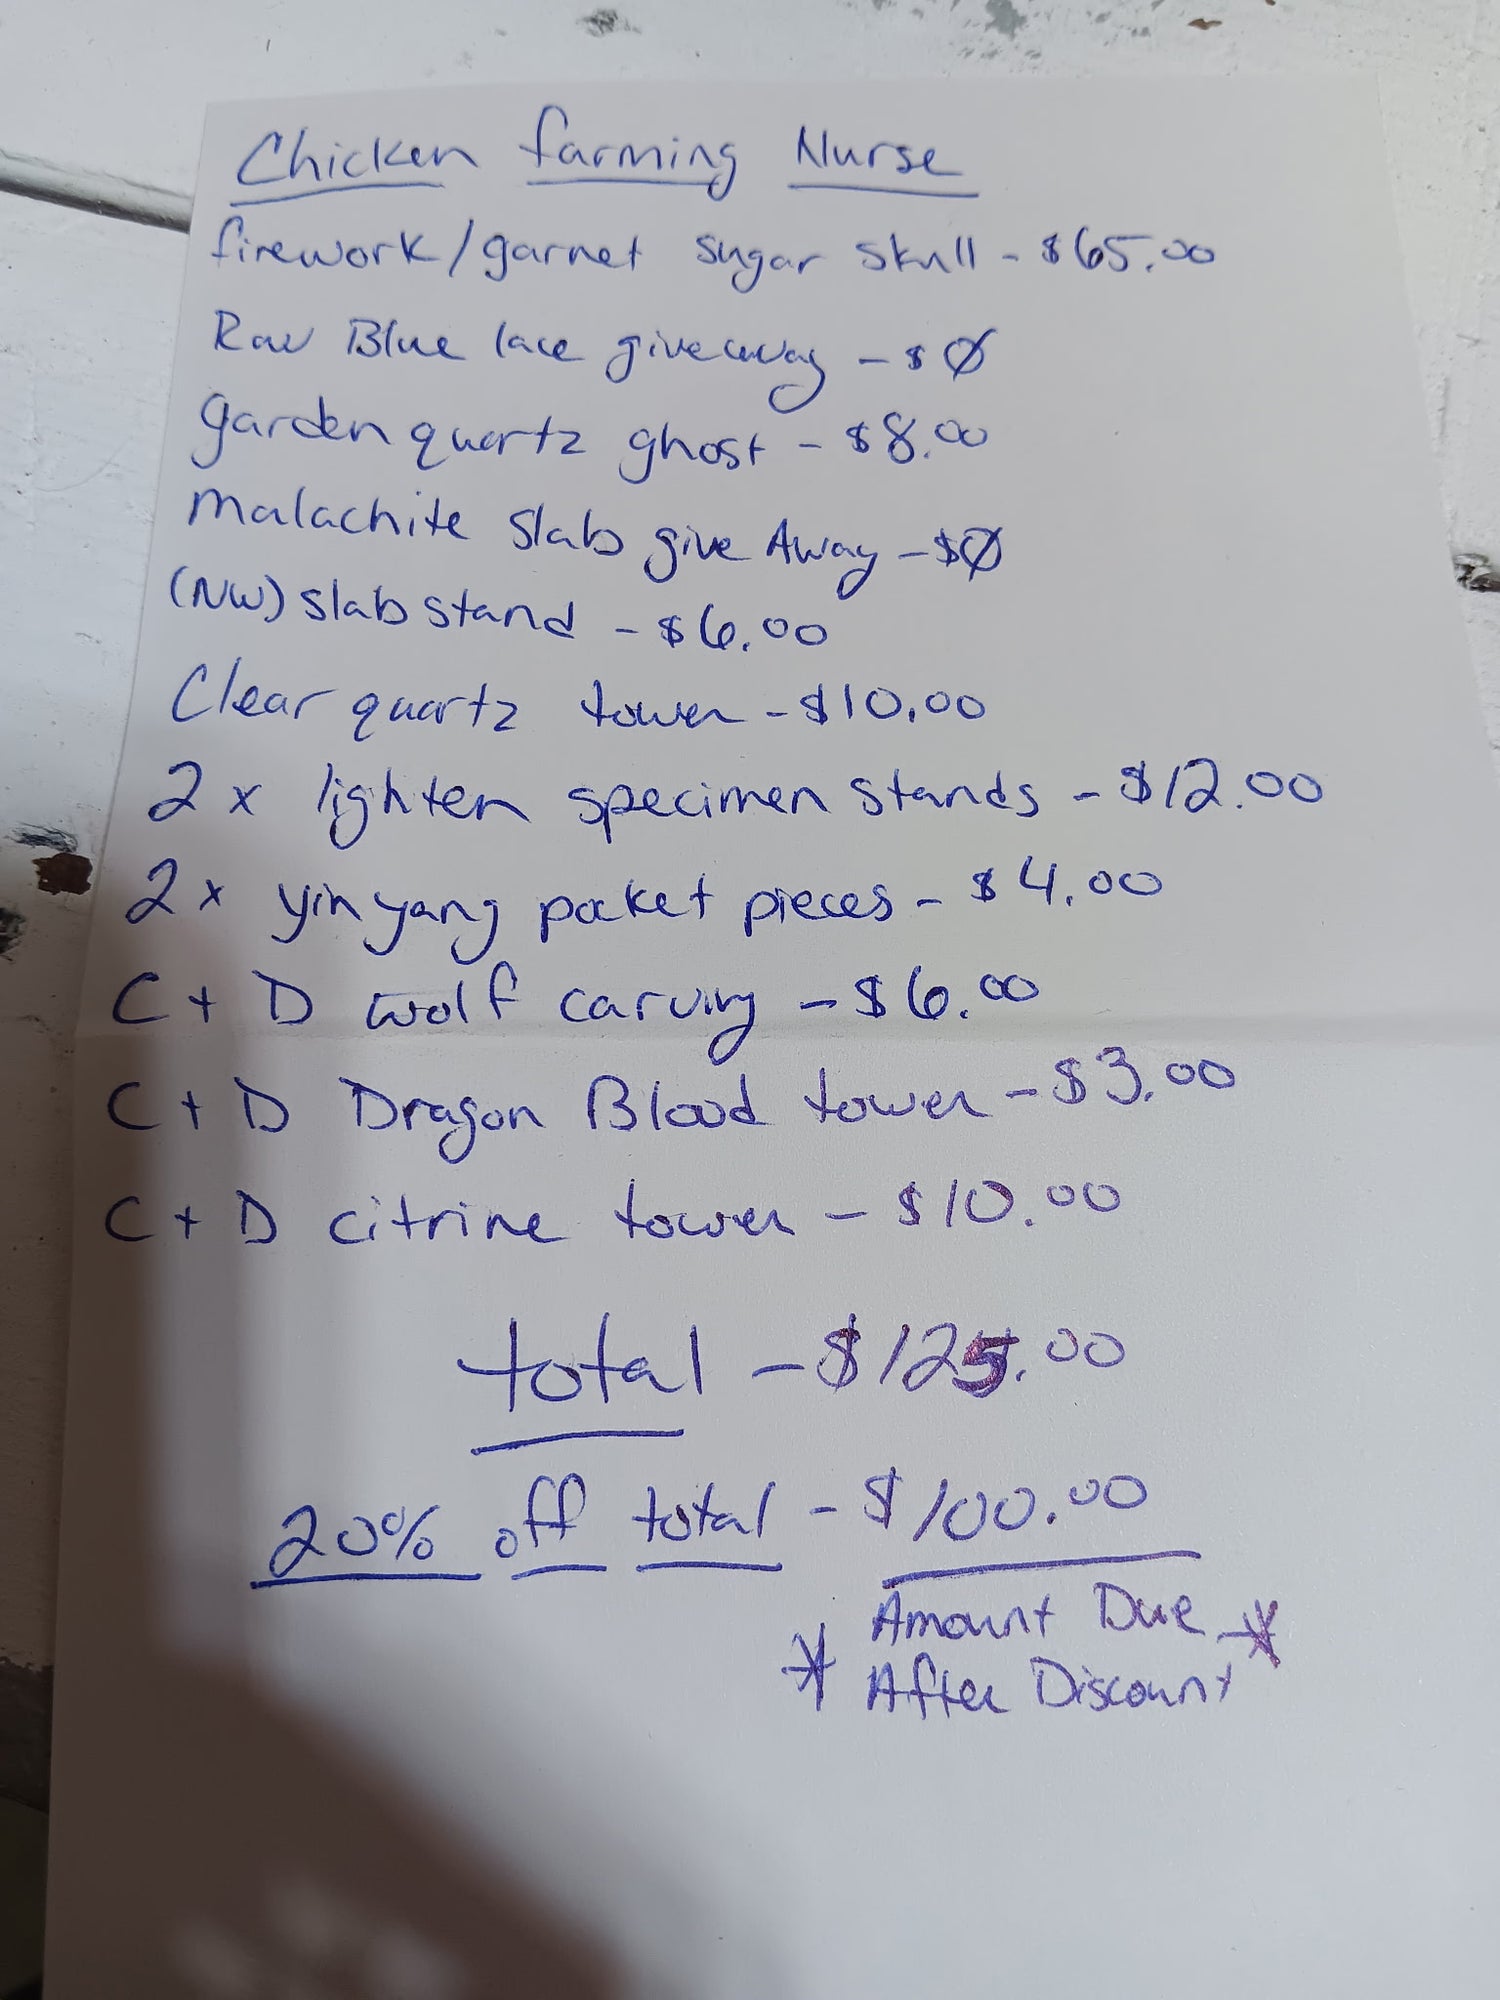 Chicken farming Nurse
firework/garnet sugar skull - $65.00
Raw Blue lace giveaway - $0
garden quartz ghost - $8.00
Malachite slab give Away - $0
(NW) slab stand - $6.00
Clear quartz tower - $10.00
2 x lighten specimen stands - $12.00
2 x yin yang pocket pieces - $4.00
C + D wolf carving - $6.00
C + D Dragon Blood tower - $3.00
C + D citrine tower - $10.00
total - $125.00
20% off total - $100.00
* Amount Due *
After Discount